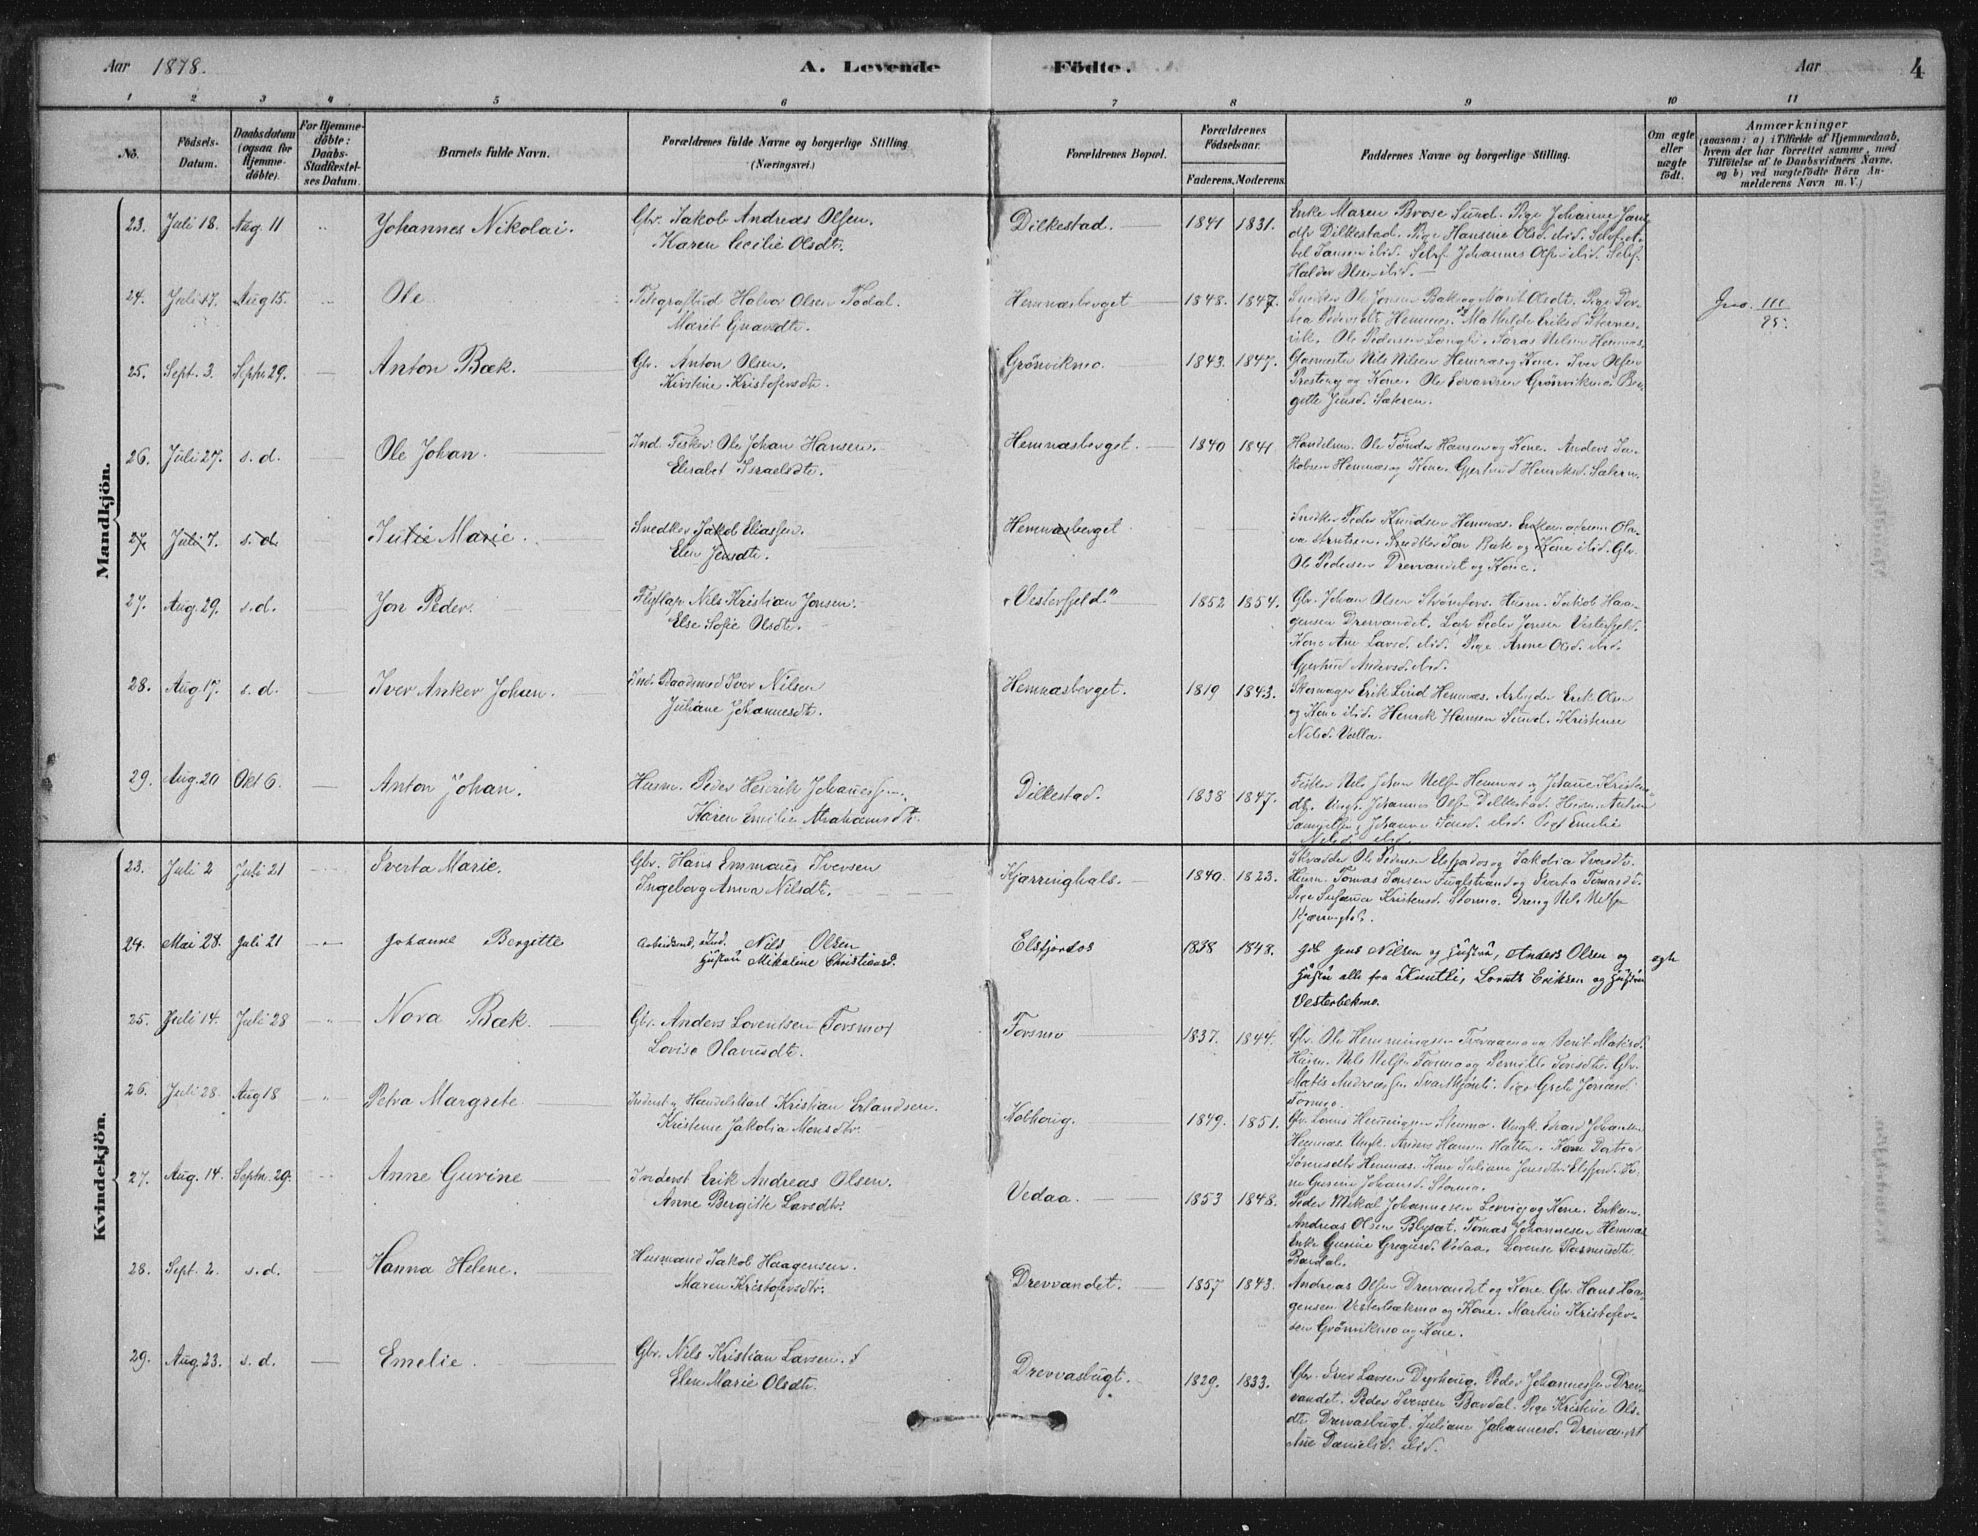 Aar 1878.
A. Levende
Födte.
Aar
4
1 2 3 4 5 6 7 8 9 10 11
No.
Födsels-
Datum.
Daabsdatum
(ogsaa for
Hjemme-
döbte).
For Hjemme-
döbte:
Daabs-
Stadfæstel-
ses Datum.
Barnets fulde Navn.
Forældrenes fulde Navne og borgerlige Stilling
(Næringsvei.)
Forældrenes Bopæl.
Forældrenes
Födselsaar.
Faderens. Moderens.
Faddernes Navne og borgerlige Stilling.
Om ægte
eller
uægte
födt.
Anmærkninger
(saasom: a) i Tilfælde af Hjemmedaab,
hvem der har forrettet samme, med
Tilföielse af to Daabsvidners Navne.
og b) ved uægtefödte Börn An-
melderens Navn m. V.)
Mandkjön.
23. Juli 18. Aug. 11 Johannes Nikolai. Gbr. Jakob Andreas Olsen. Dilkestad. 1841 1831.
Karen Cecilie Olsdtr.
Enke Maren Brose Sund. Pige Johanne
Dilkestad. Pige Hansine Olsd. ibid.
Jansen ibid. Selvf. Johannes Ols. ibid. Selvf.
Haldor Olsen ibid.
24. Juli 17. Aug 15. Ole Telegrafbud Halvor Olsen Todal. Hemnæsberget 1848. 1847.
Marit
Snedker Ole Jonsen Bak og Marit Olsdt. Pige
Pedersdt. Hemnæs. Mathilde Eriksd.
Ole Pedersen Hemnæs.
III
95.
25. Sept. 3. Septr. 29. Anton Bæk. Gbr. Anton Olsen. Grønvikmo. 1843. 1847.
Kirstine Kristofersdtr.
Nils Nilsen Hemnæs og Kone. Iver Olsen
og Kone. Ole Edvardsen Grønvikmo.
26. Juli 27. s. d. Ole Johan. Ind. Fisker Ole Johan Hansen. Hemnæsberget. 1840 1841
Elisabet Israelsdtr.
Handelsm. Ole Tønder Hansen og Kone. Anders Ja-
kobsen Hemnæs og Kone. Gjertrud Henriksd.
27. Juli 7. s. d. Julie Marie. Snedker Jakob Eliassen. Hemnæsberget
Elen Jensdtr.
Snedker Peder Knudsen Hemnæs.
Snedker Jon Bak og Kone ibid. Gbr.
Ole Pedersen Drevvandet og Kone.
27. Aug. 29. s. d. Jon Peder. Flytlap Nils Kristian Jonsen. "Vesterfjeld" 1852 1854.
Else Sofie Olsdtr.
Gbr. Johan Olsen Strømfors. Husm. Jakob Haa-
gensen Drevvandet. Lap Peder Jonsen Vesterfjeld.
Kone Ane Larsd. ibid. Pige Anne Olsd. ibid.
Gjertrud Andersd. ibid.
28. Aug. 17. s. d. Iver Anker Johan. Ind. Baadsmed Iver Nilsen Hemnæsberget. 1819 1843.
Juliane Johannesdtr.
Skomager Erik Lind Hemnæs. Arbeider Erik Olsen
og Kone ibid. Henrik Hansen Sund. Kristense
Nilsd. Valla.
29. Aug. 20 Okt 6. Anton Johan. Husm. Peder Henrik Johannessen. Dilkestad. 1838 1847.
Karen Emilie Abrahamsdtr.
Fisker Nils Johan Nilsen Hemnæs og Johanne
Ungk. Johannes Olsen Dilkestad. Husm. Anton
Johanna ibid. Pige Emilie
Nilsd. ibid.
Kvindekjön.
23. Juli 2 Juli 21 Sverta Marie. Gbr. Hans Emmaus Iversen Kjærringhals. 1840. 1823.
Ingeborg Anna Nilsdt.
Skrædder Ole Pedersen Elsfjordos og Jakobia Iversdtr.
Husm. Tomas Jansen Fuglstrand og Sverta Tomasd.
Pige Susanna Kristensd. Stormo. Dreng Nils Nilsen
24. Mai 28. Juli 21 Johanne Bergitte Arbeidsmd, Ind. Nils Olsen Elsfjordos 1838 1848.
Hustru Mikaline Christiansd.
gbr Jens Nilsen og Hustru, Anders Olsen og ægte
Hustru alle fra Knutli, Lornts Eriksen og Hustru
Vesterbekmo.
25. Juli 14. Juli 28 Nora Bæk. Gbr. Anders Lorentsen Forsmo Forsmo 1837. 1844.
Lovise Olausdtr.
Gbr. Ole Hemmingsen Tverraamo og Berit Matisd.
Husm. Nils Nilsen Forsmo og Pernille Larsdtr. Gbr.
Matis Andreassen Svarttjønli. Pige Grete Jonasd.
Forsmo.
26. Juli 28. Aug 18 Petra Margrete Inderst og Handelskarl Kristian Erlandsen. Kobhoug. 1849. 1851.
Kristense Jakobia Monsdtr.
Gbr. Lorns Hemmingsen Stenmo. Ungk. Edvard Johansen
Hemnæs. Ungk. Anders Hansen Hatten. Kone
Hemnæs. Kone Juliane Jensdtr. Elsfjord.
Gurine Johansd. Stormo.
27. Aug. 14. Septr. 29. Anne Gurine Inderst Erik Andreas Olsen. Vedaa. 1853 1848.
Anne Bergitte Larsdtr.
Peder Mikal Johannesen Lervig og Kone. Enkem.
Andreas Olsen Blysæt. Tomas Johannesen Hemnæs
Enke Gurine Gregusd. Vedaa. Lorense Rasmusdtr.
Bardal.
28. Sept. 2. s. d. Hanna Helene. Husmand Jakob Haagensen. Drevvandet. 1857 1843.
Maren Kristofersdtr.
Andreas Olsen Drevvandet og Kone. Gbr. Hans Haa-
gensen Vesterbækmo og Kone. Martin Kristofer-
sen Grønvikmo og Kone.
29. Aug. 23. s. d. Emelie. Gbr. Nils Kristian Larsen. Drevvasbugt. 1829. 1833.
Elen Marie Olsdtr.
Gbr. Iver Larsen Dyrhoug. Peder Johannessen Drev-
vandet. Peder Iversen Bardal. Pige Kristine Ols-
dtr. Drevvasbugt. Juliane Johannesd. Drevvandet
Ane Danielsd. ibid.